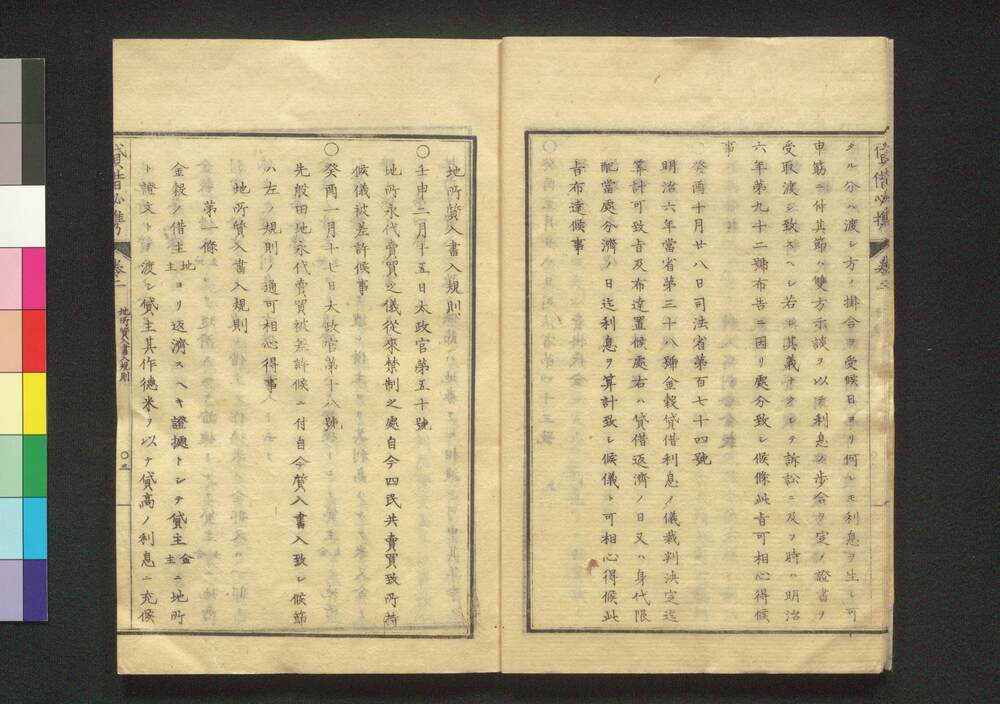 貸借必携
巻之二
タル分ハ渡シ方ノ掛合ヲ受候日ヨリ何レモ利息ヲ生シ可
申筋ニ付其節ハ雙方示談ヲ以法利息ノ歩合ヲ定ノ證書ヲ
受取渡シ致スヘシ若シ其義ナクシテ訴訟ニ及ヲ時ハ明治
六年第九十二號布告ニ因リ處分致シ候條此旨可相心得候
事
〇癸酉十月廿八日司法省第百七十四號
明治六年當省第三十八號金穀貸借利息ノ儀裁判決定迄
算計可致旨及布達置候處右ハ貸借返濟ノ日又ハ身代限
配當處分濟ノ日迄利息ヲ算計致シ候儀ト可相心得候此
旨布達候事
地所質入書入規則
〇壬申二月十五日太政官第五十號
地所永代賣買之儀從來禁制之處自今四民共賣買致所持
候儀被差許候事
〇癸酉一月十七日太政官第十八號
先般田地永代賣買被差許候ニ付自今質入書入致シ候節
ハ左ノ規則ノ通可相心得事
地所質入書入規則
第一條
金穀ノ借主地主ヨリ返濟スヘキ證據トシテ貸主金主ニ地所
ト證文ト渡シ貸主其作德米ヲ以テ貸高ノ利息ニ充候
貸借必携
巻二
地所質入書入規則
〇三